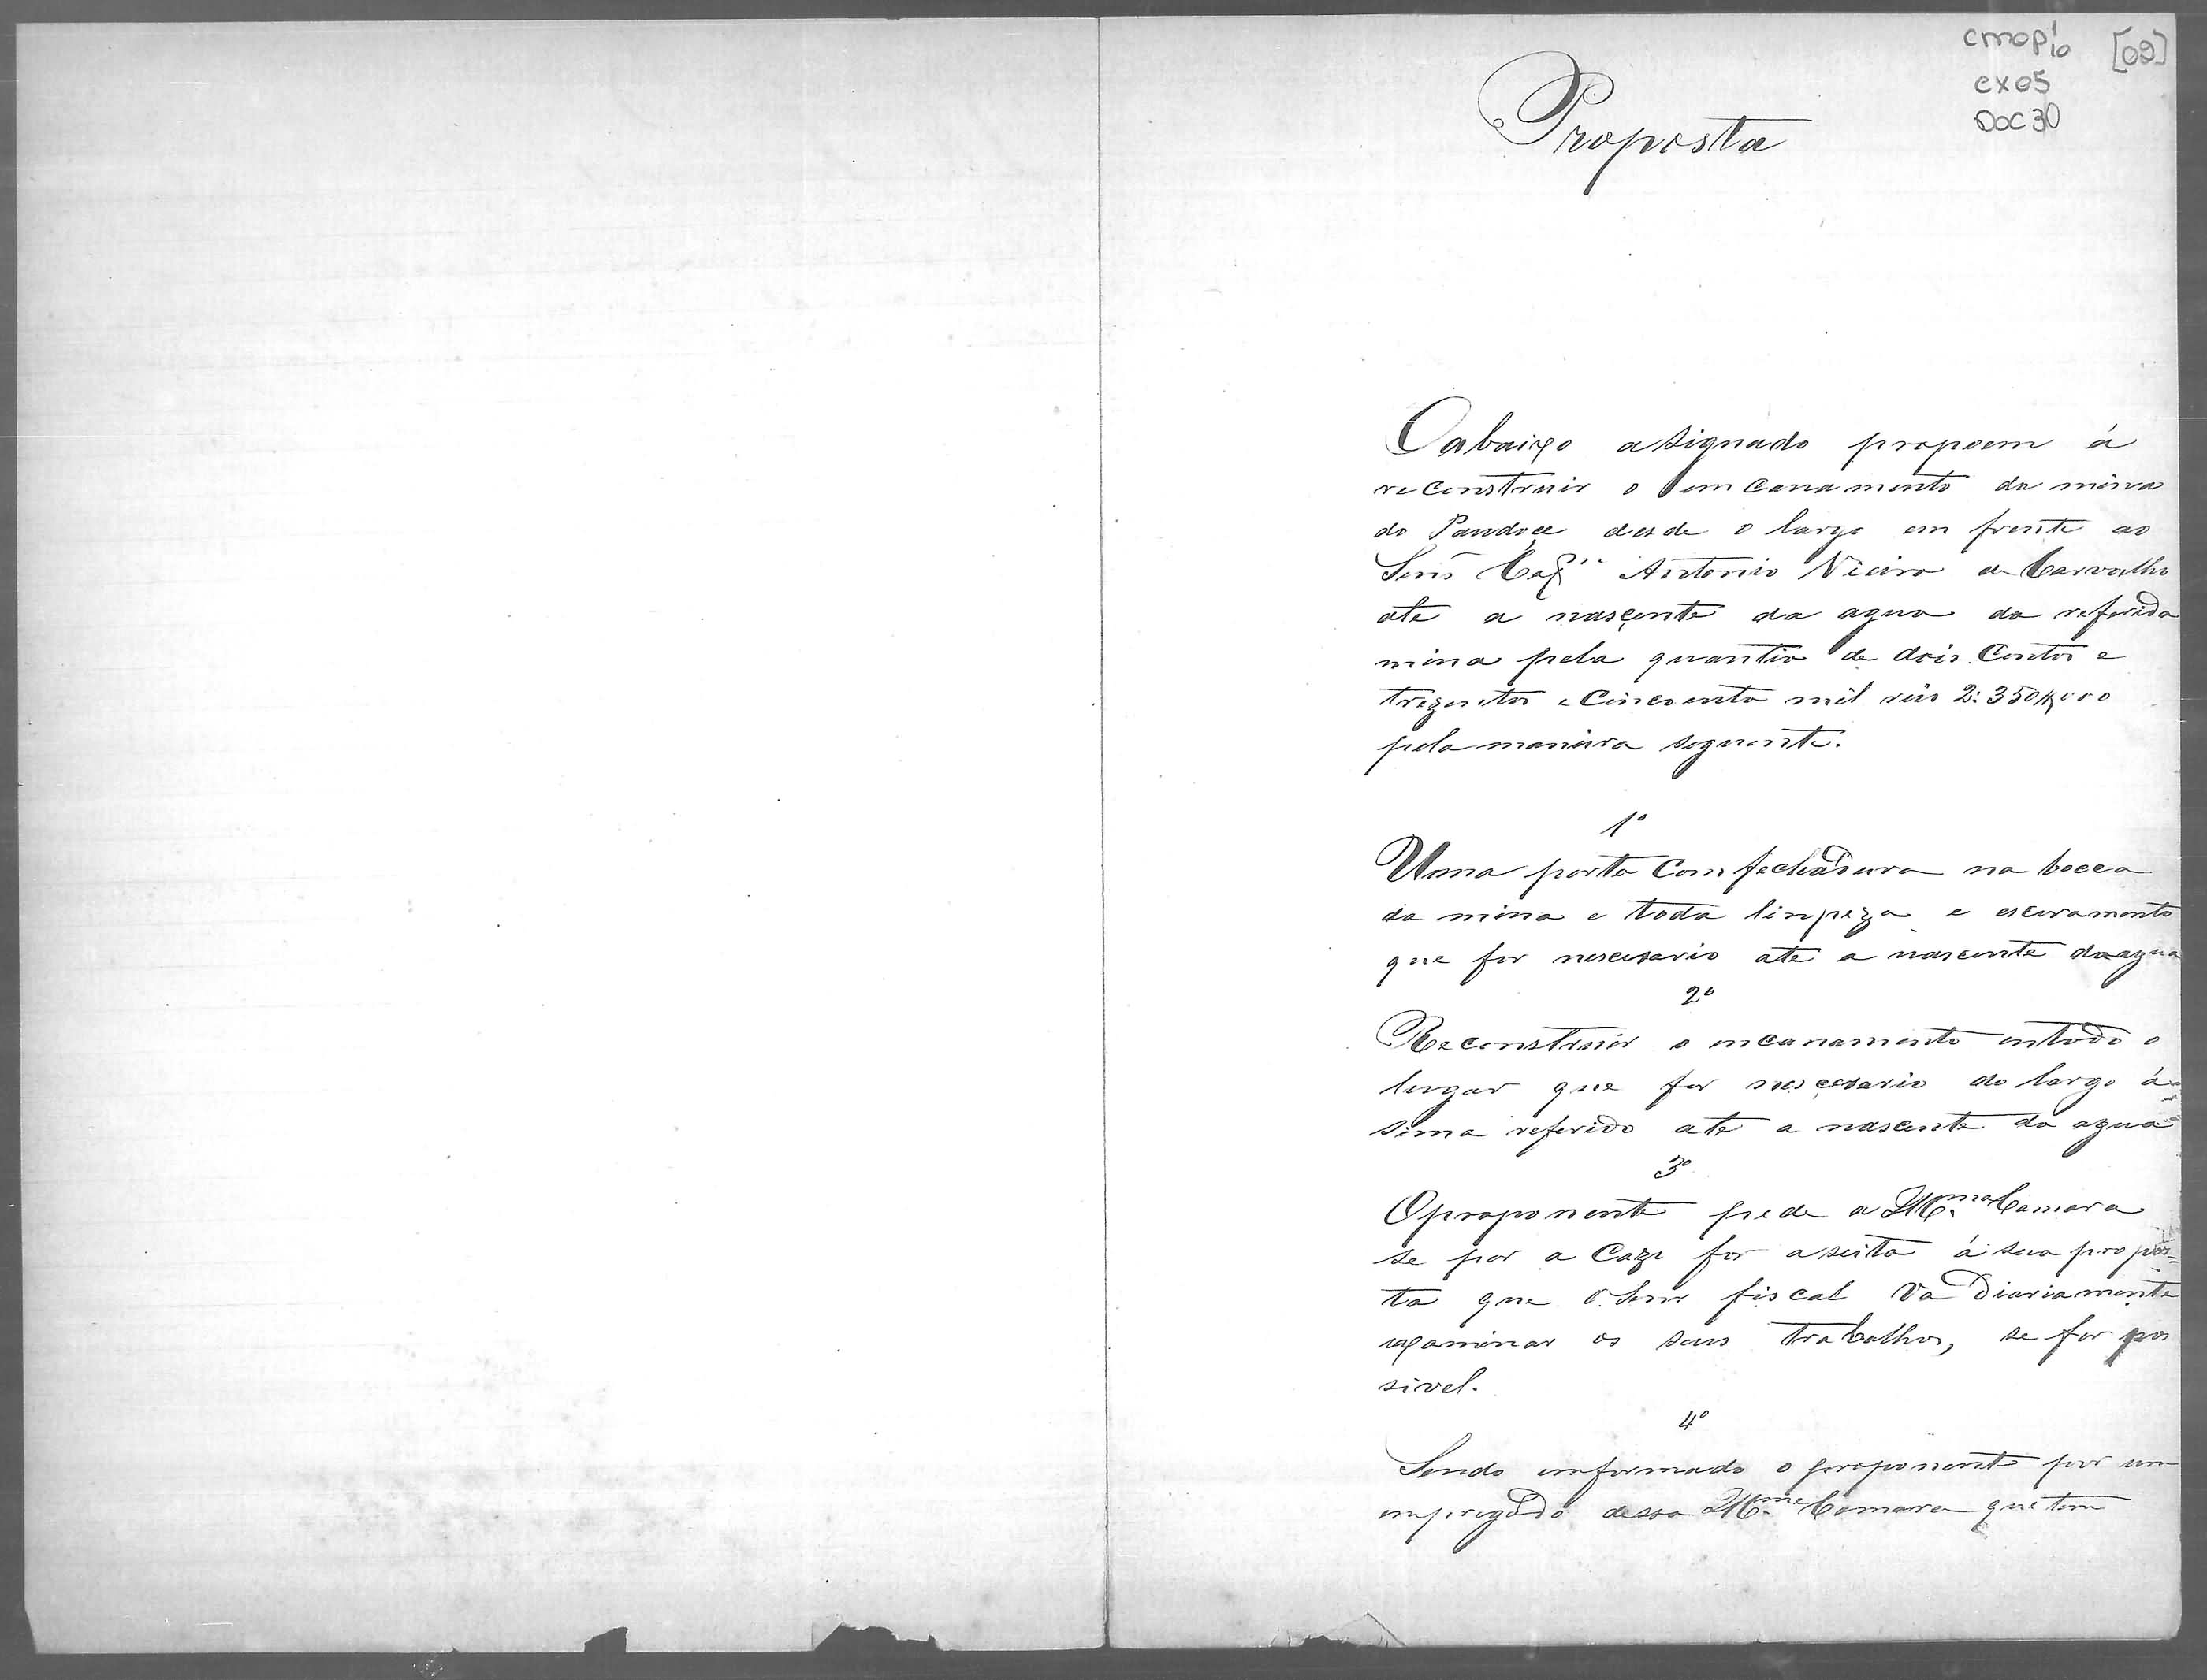 cmopio [02]
cx05
Doc 30
Proposta
O abaixo asignado propoem á
reconstruir o emcanamento da mina
do Paudoce desde o largo em frente ao
Senr Capm Antonio Vieira de Carvalho
ate a nasçente da agua da referida
mina pela quantia de dois Contos e
trezentos e Cincoenta mil reis 2:350$000
pela maneira seguente.
1º
Uma porta Com fechadura na bocca
da mina e toda linpeza e escoramento
que for nescesario ate a nascente da agua
2º
Reconstruir o encanamento em todo o
lugar que for nesçesario do largo á
sima referido ate a nascente da agua
3º
O proponente pede a Illma Camara
se por a Cazo for aseita á sua propos=
ta que o Senr fiscal vá Diariamente
examinar os seus trabalhos, se for pos
sivel.
4º
Sendo emformado o proponente por um
empregado dessa Illma Camara que tem